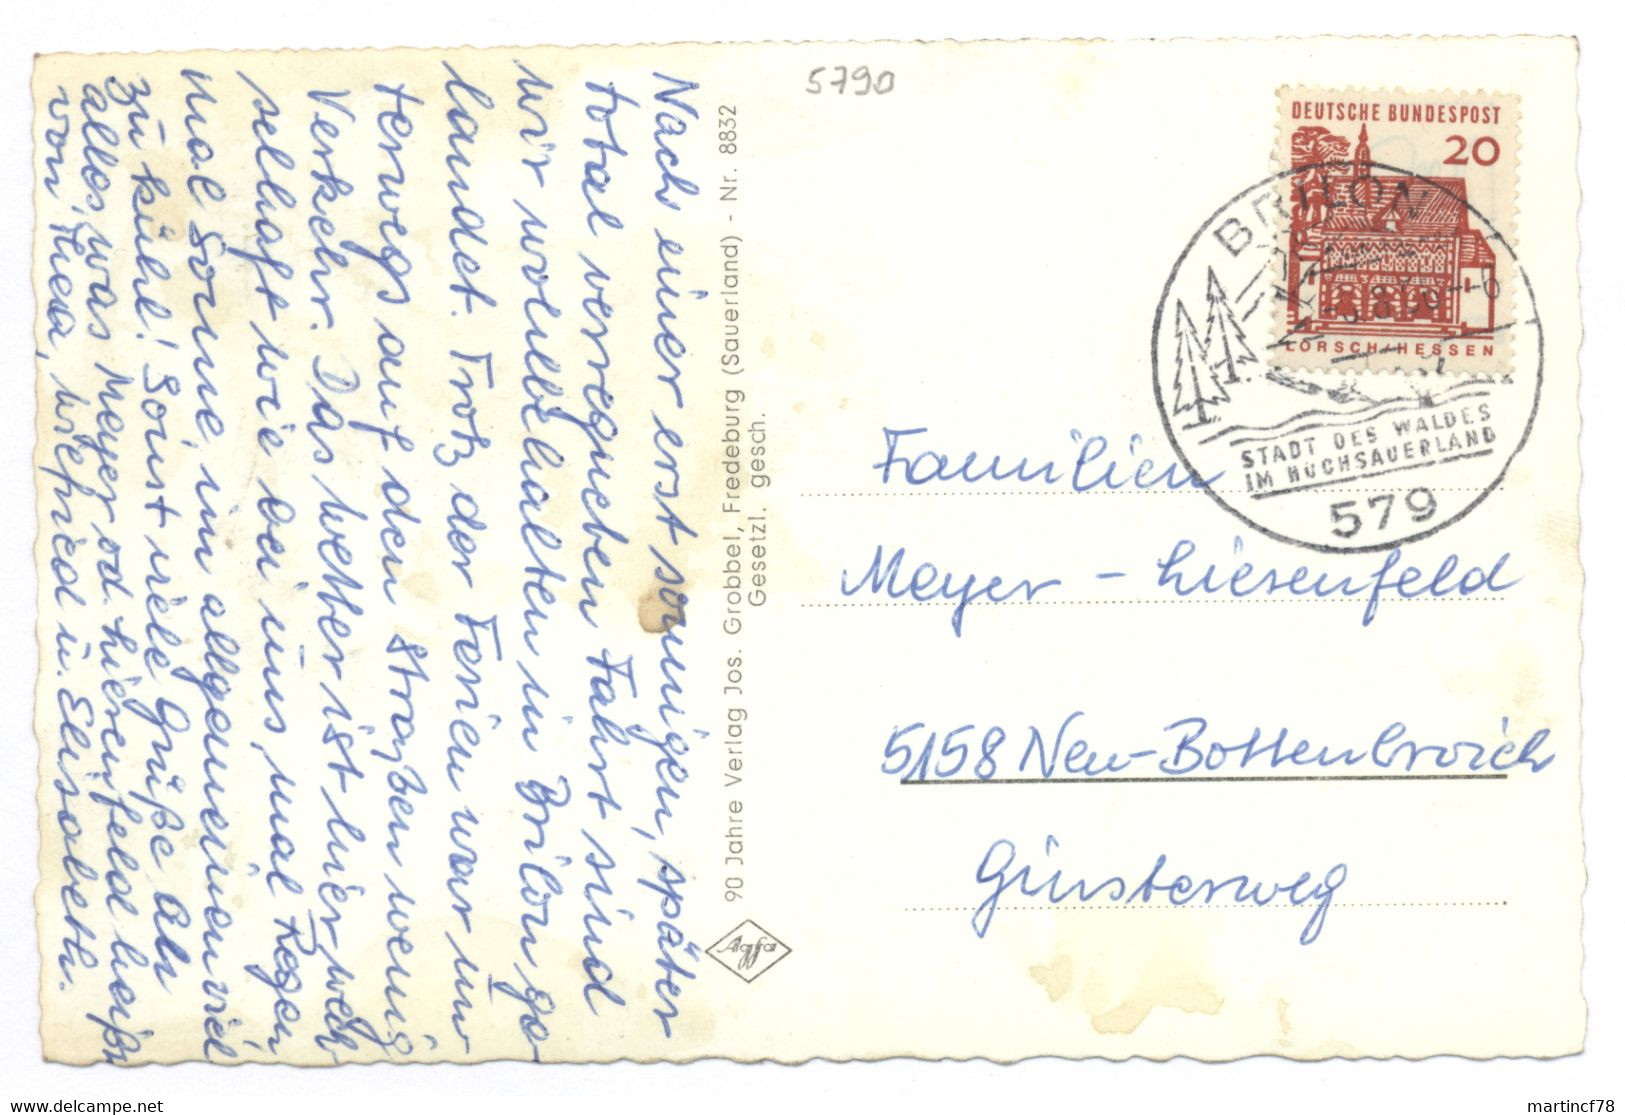 5790
DEUTSCHE BUNDESPOST
20
LORSCH/HESSEN
BRILON
STADT DES WALDES
IM HOCHSAUERLAND
579
Nach einer erst sonnigen, später
total verregneten Fahrt sind
wir wohlbehalten in Brilon ge
landet. Trotz der Ferien war un
terwegs auf den Straßen wenig
Verkehr. Das Wetter ist hier wech
selhaft wie bei uns, mal Regen
mal Sonne, im allgemeinen viel
zu kühl! Sonst viele Grüße an
alles, was Meyer od. Liesenfeld heißt
von Thea, Wilfried u. Elisabeth.
90 Jahre Verlag Jos. Grobbel, Fredeburg (Sauerland) - Nr. 8832
Gesetzl. gesch.
Agfa
Familien
Meyer - Liesenfeld
5158 Neu-Bottenbroich
Ginsterweg
www.delcampe.net
martincf78